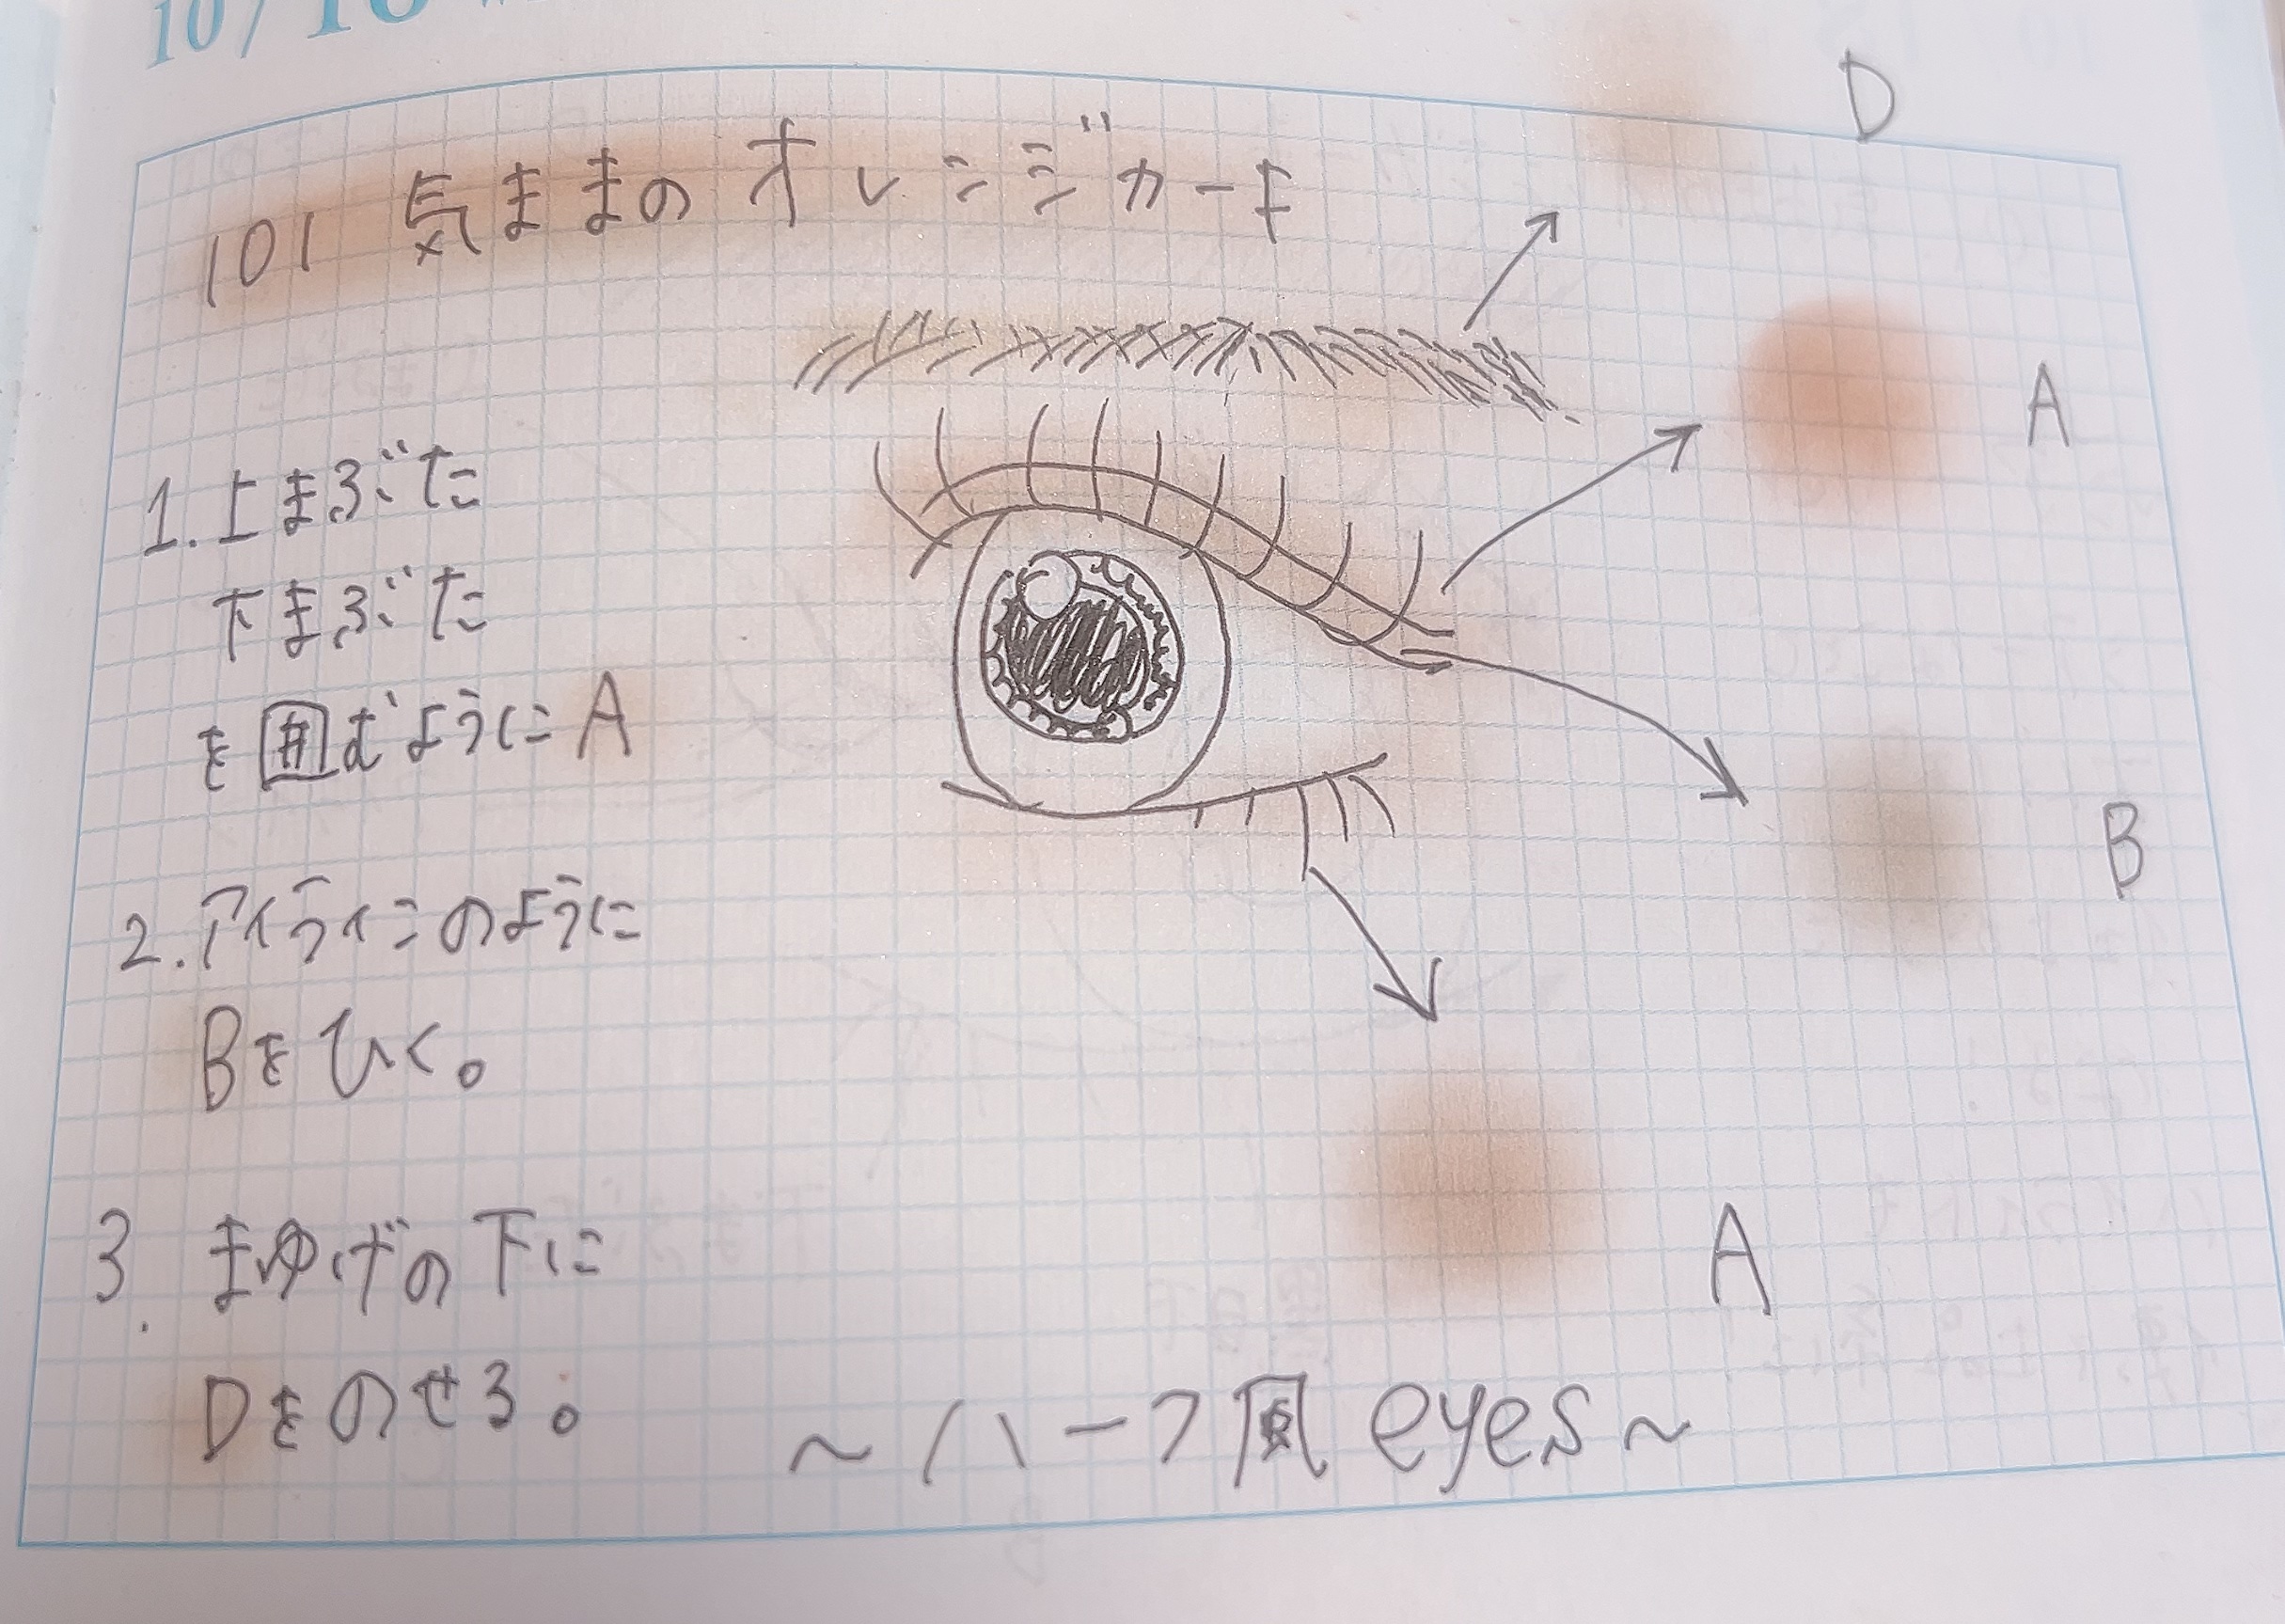 10/18
101 気ままのオレンジカーキ
D
A
1. 上まぶた
下まぶた
を囲むようにA
B
2. アイラインのように
Bをひく。
A
3. まゆげの下に
Dをのせる。
~ハーフ風 eyes~